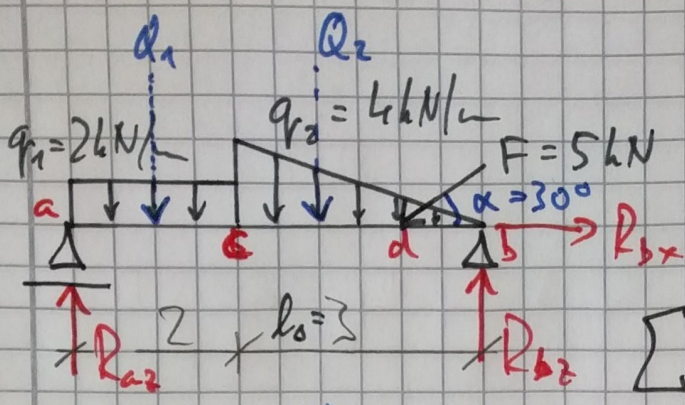 Q₁ Q₂
q₁=2kN/m q₂=4kN/m F=5kN
a α=30°
c d b Rbx
2 l₀=3
Raz Rbz